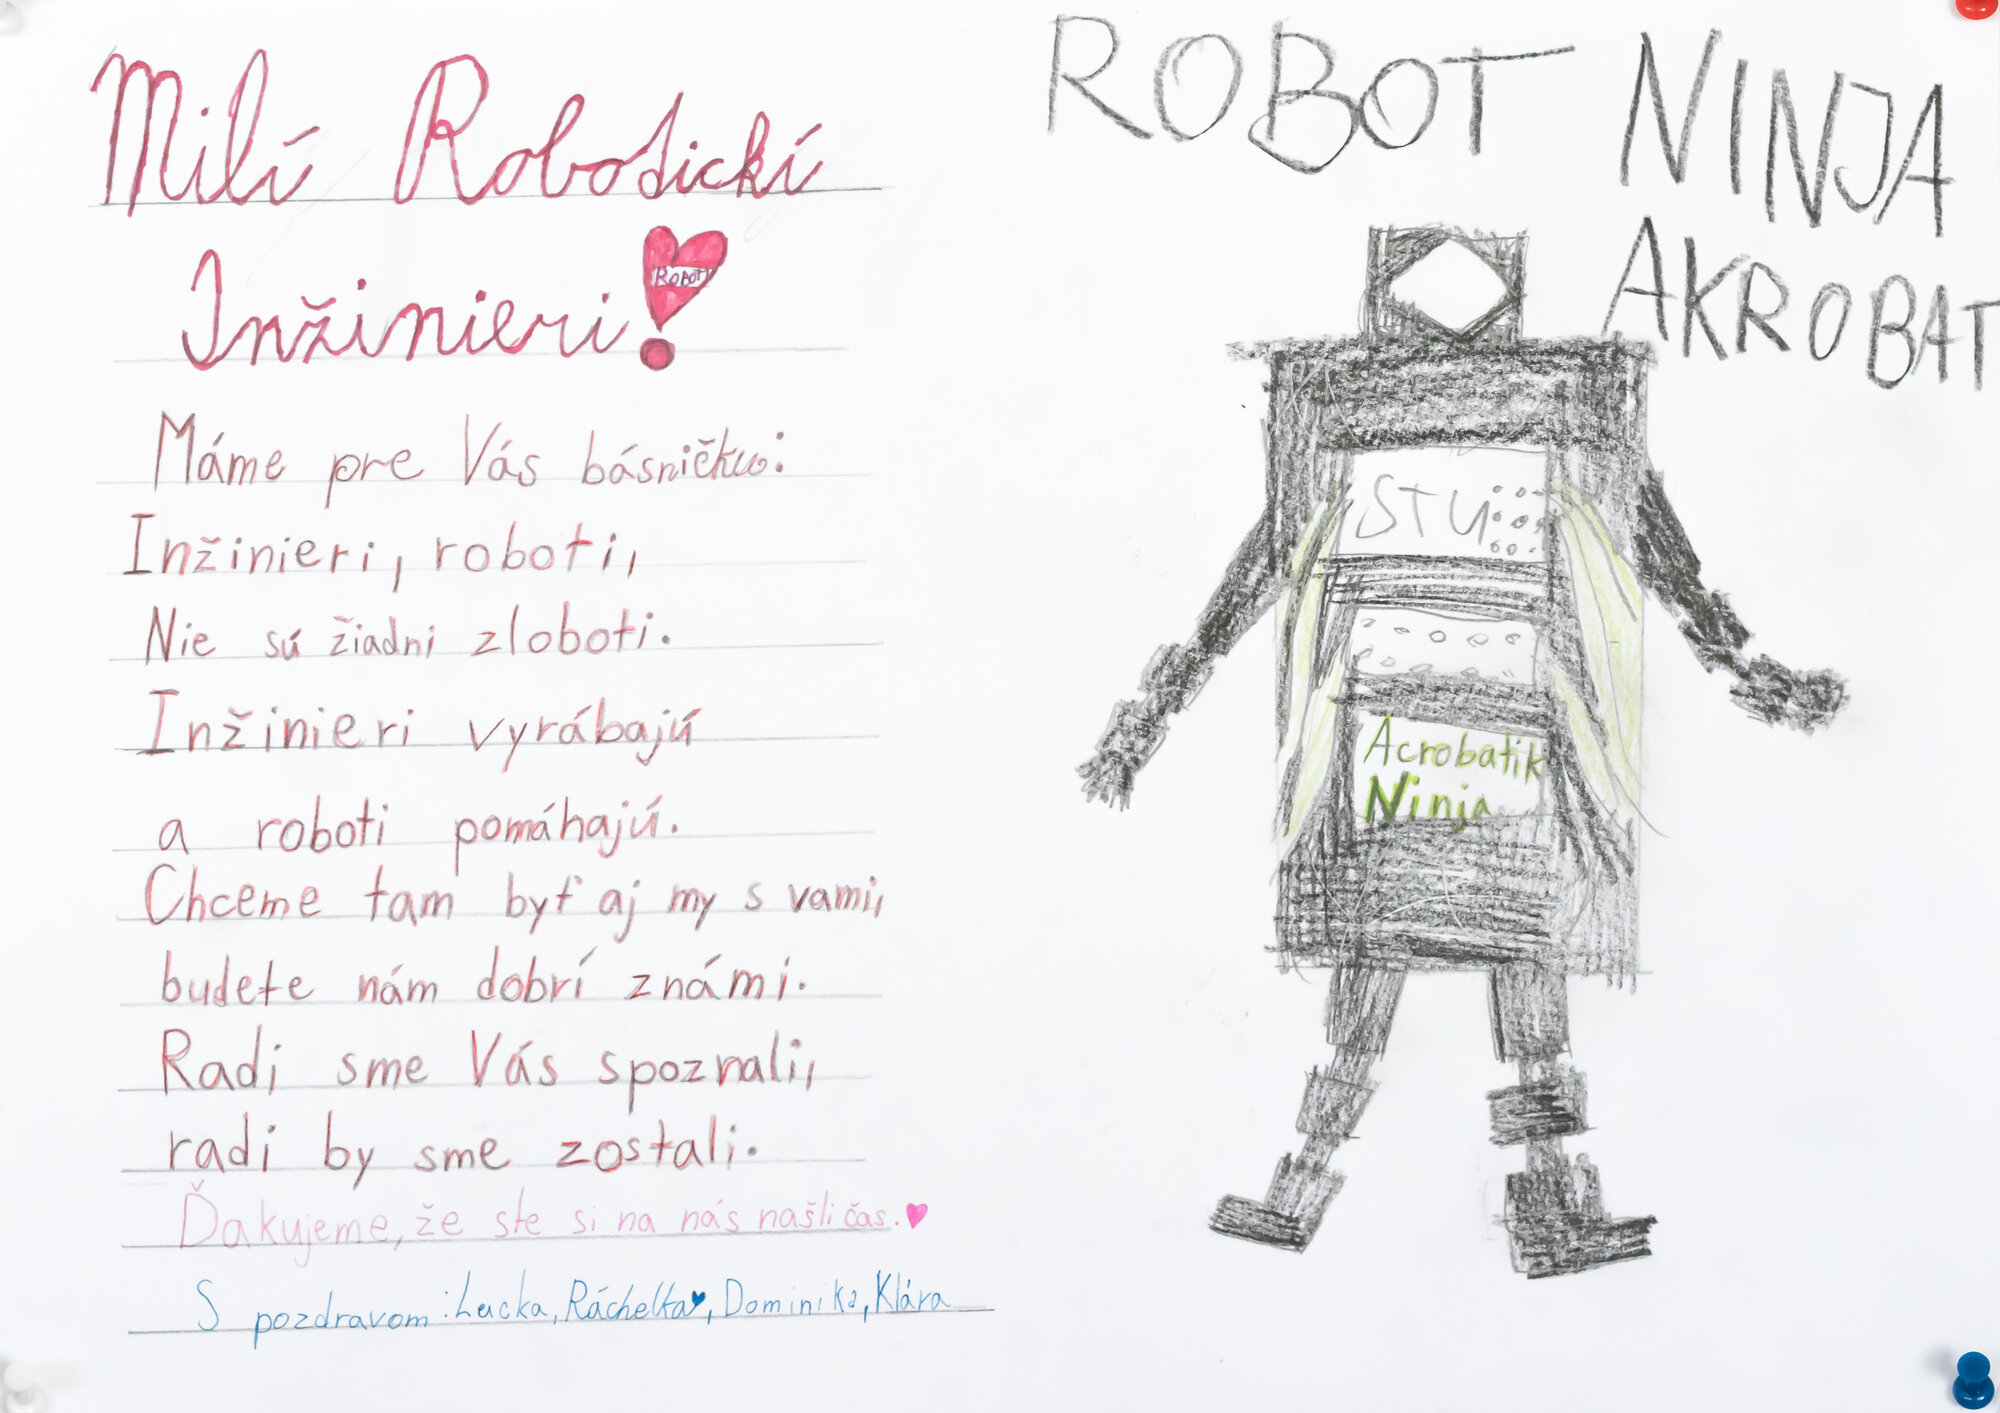 Milí Robotickí
Inžinieri!
ROBOTY
Máme pre Vás básničku:
Inžinieri, roboti,
Nie sú žiadni zloboti.
Inžinieri vyrábajú
a roboti pomáhajú.
Chceme tam byť aj my s vami,
budete nám dobrí známi.
Radi sme Vás spoznali,
radi by sme zostali.
Ďakujeme, že ste si na nás našli čas.
S pozdravom: Lucka, Ráchelka, Dominika, Klára
ROBOT NINJA
AKROBAT
STU
Acrobatik
Ninja